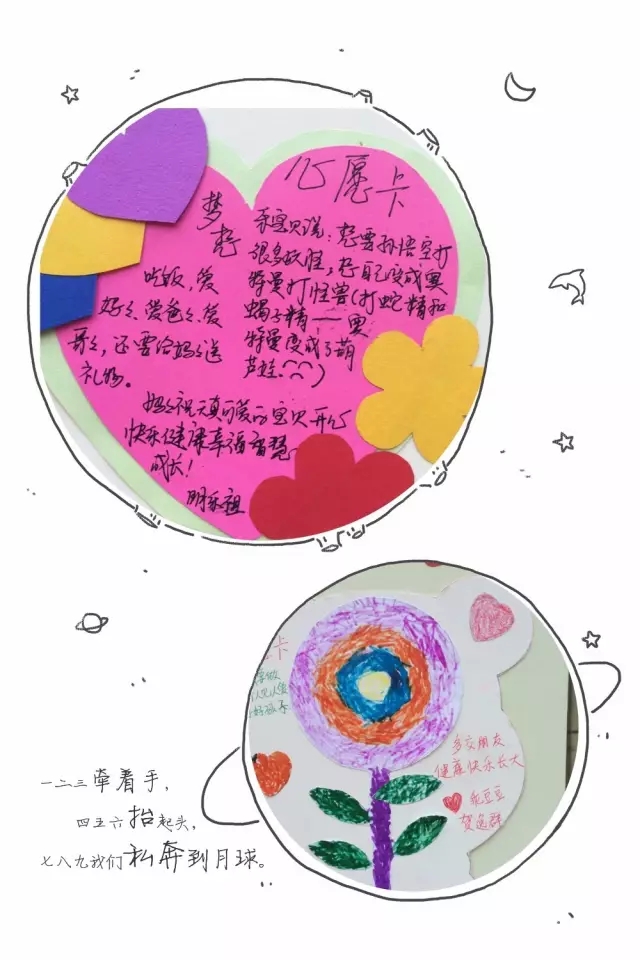 心愿卡
梦想
乐宝贝说:想要孙悟空打
很多妖怪,想自己变成奥
特曼打怪兽(打蛇精和
蝎子精——奥
特曼变成了葫
芦娃.)
吃饭,爱
好々、爱爸々、爱
哥々,还要给妈々送
礼物。
妈々祝天真可爱的宝贝开心
快乐健康幸福智慧
成长!
明乐祖
卡
多交朋友
健康快乐长大
乖豆豆
贺逸群
一二三牵着手,
四五六抬起头,
七八九我们私奔到月球。